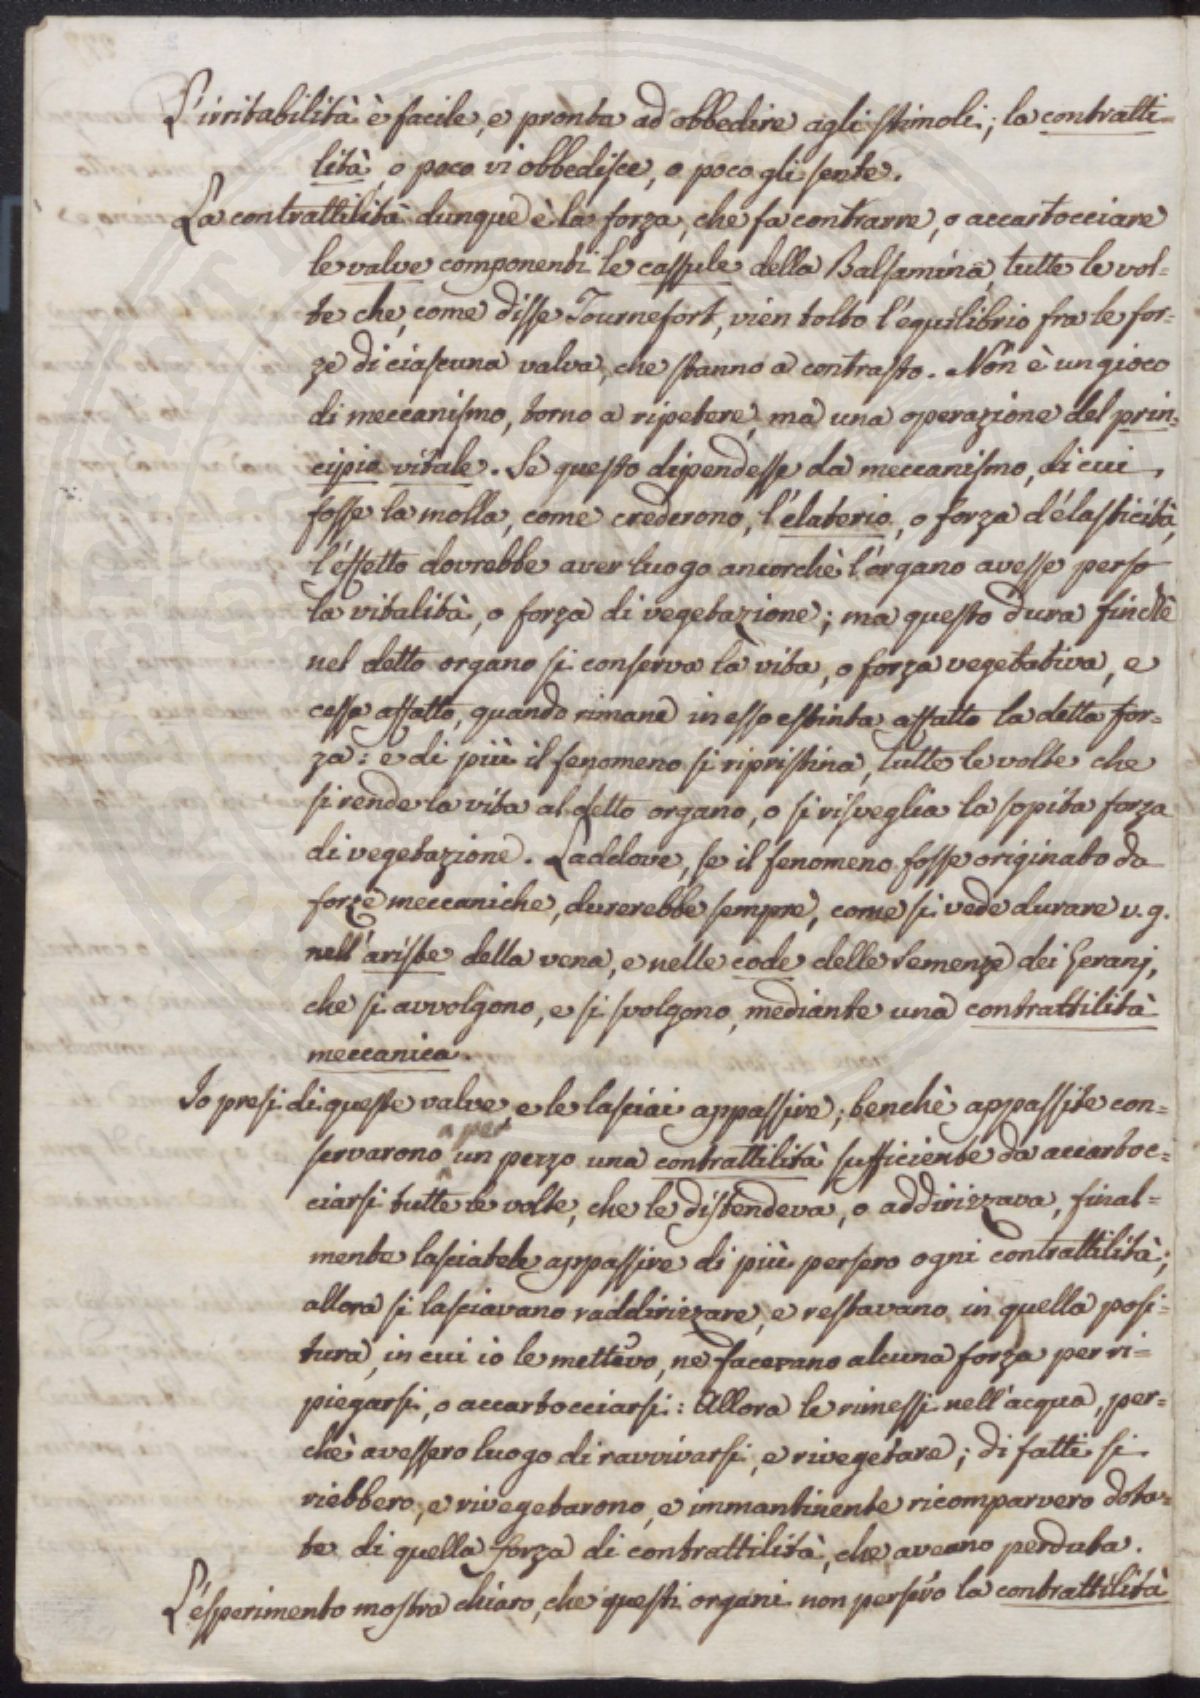 L'irritabilità è facile, e pronta ad obbedire agli stimoli; la contratti-
lità o poco vi obbedisce, o poco gli sente.
La contrattilità dunque è la forza, che fa contrarre, o accartocciare
le valve componenti le cassule della Balsamina, tutte le vol-
te che, come disse Tournefort, vien tolto l'equilibrio fra le for-
ze di ciascuna valva, che stanno a contrasto. Non è un gioco
di meccanismo, torno a ripetere, ma una operazione del prin-
cipio vitale. Se questo dipendesse da meccanismo, di cui
fosse la molla, come crederono, l'elaterio, o forza d'elasticità,
l'effetto dovrebbe aver luogo ancorchè l'organo avesse perso
la vitalità, o forza di vegetazione; ma questo dura finchè
nel detto organo si conserva la vita, o forza vegetativa, e
cessa affatto, quando rimane in esso estinta affatto la detta for-
za: e di più il fenomeno si ripristina, tutte le volte che
si rende la vita al detto organo, o si risveglia la sopita forza
di vegetazione. Laddove, se il fenomeno fosse originato da
forze meccaniche, durerebbe sempre, come si vede durare v. g.
nell'ariste della vena, e nelle code delle Semenze dei Geranj,
che si avvolgono, e si svolgono, mediante una contrattilità
meccanica.
Io presi di queste valve, e le lasciai appassire; benchè appassite con-
servarono per un pezzo una contrattilità sufficiente da accartoc-
ciarsi tutte le volte, che le distendeva, o addirizzava, final-
mente lasciatele appassire di più persero ogni contrattilità;
allora si lasciavano raddirizzare, e restavano in quella posi-
tura, in cui io le mettevo, nè facevano alcuna forza per ri-
piegarsi, o accartocciarsi: Allora le rimessi nell'acqua, per-
chè avessero luogo di ravvivarsi, e rivegetare; di fatti si
riebbero, e rivegetarono, e immantinente ricomparvero dota-
te di quella forza di contrattilità, che aveano perduta.
L'esperimento mostra chiaro, che questi organi non persero la contrattilità